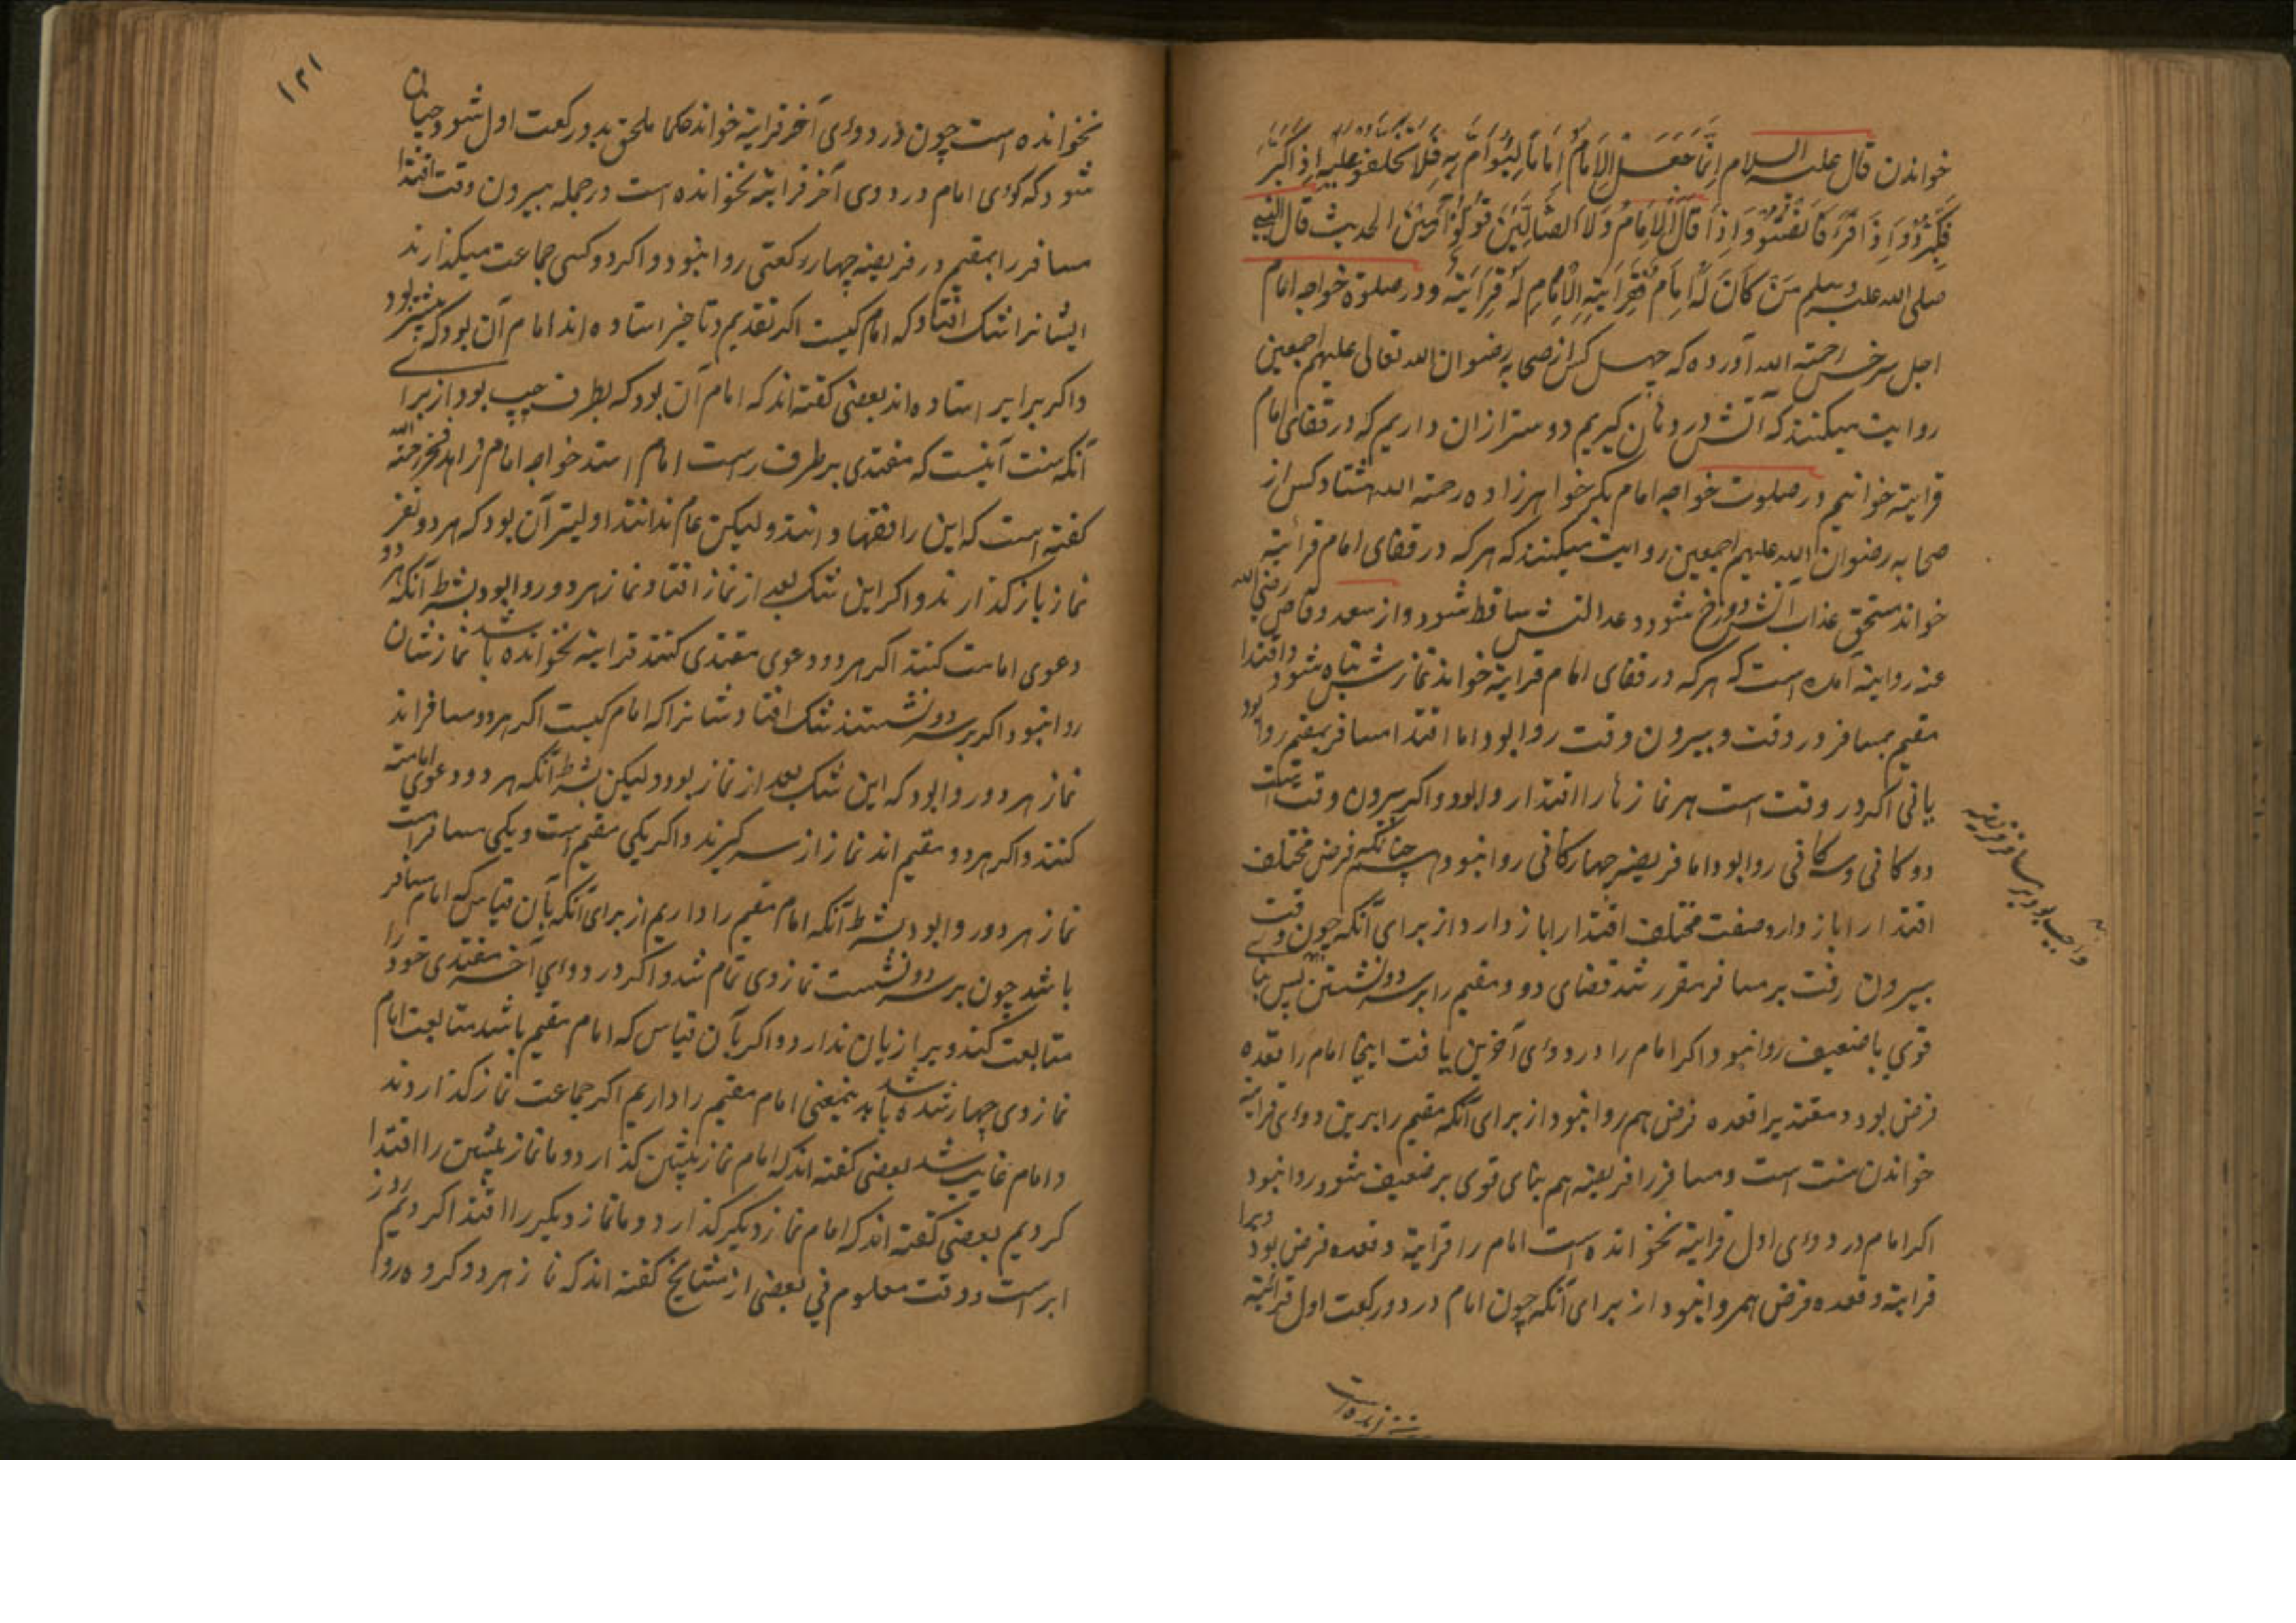 خواندن قال علیه السلام اِنَّمَا جُعِلَ الاِمَامُ اِمَامًا لِیُؤتَمَّ بِهِ فَلَا تختلفو علیه اِذَا کَبَّرَ
فَکَبِّرُوْا وَاِذَا قَرَءَ فَانْصِتُوْا وَاِذَا قَالَ الاِمَامُ وَلَا الضَّالِّیْنَ قُوْلُوْا آمِیْنَ الحدیث قال النبی
صلی الله علیه وسلم مَنْ کَانَ لَهُ اِمَام فَقِرَایَةِ الْاِمَامِ لَهُ قِرَایَتهُ ودر صلوة خواجه امام
اجل سرخسی رحمته الله آورده که چهل کس از صحابه رضوان الله تعالی علیهم اجمعین
روایت میکنند که آتش در دهان گیریم دوستر ازان داریم که در قفای امام
قرایة خوانیم در صلوت خواجه امام بکر خواهرزاده رحمته الله هشتاد کس از
صحابه رضوان الله علیهم اجمعین روایت میکنند که هر که در قفای امام قرائیة
خواند مستحق عذاب آتش دوزخ شود و عدالتش ساقط شود و از سعد وقاص رضی الله
عنه روایة آمده است که هر که در قفای امام قرایة خواند نمازش تباه شود و اقتدا
مقیم بمسافر در وقت و بیرون وقت روا بود اما اقتدا مسافر بمقیم روا بود
یانی اگر در وقت است هر نمازها را اقتدا روا بود و اگر بیرون وقت است
دوکانی و سه کانی روا بود اما فریضه چهارکانی روا نبود چنانکه فرض مختلف
اقتدا را باز دارد صفت مختلف اقتدا را باز دارد از برای آنکه چون وقت
بیرون رفت بر مسافر مقرر شد قضای دو و مقیم را بر سر دو نشستن پس بنا
قوی با ضعیف روا نبود و اگر امام را در دوئی آخرین یافت اینجا امام را قعده
فرض بود و مقتدیرا قعده فرض هم روا نبود از برای آنکه مقیم را برین دوئی قرایة
خواندن سنت است و مسافر را فریضه هم بنای قوی بر ضعیف شود روا نبود
اگر امام در دوئی اول قرایة نخوانده است امام را قرایة و قعده فرض بود ویرا
قرایة و قعده فرض هم روا نبود از برای آنکه چون امام در دو رکعت اول قرائیة
واجب بود بر مسافر فریضه
نخوانده است
۱۲۱
نخوانده است چون در دوئی آخر قرایة خواند حکما ملحق بدو رکعت اول شود چنان
شود که گوئی امام در دوی آخر قرایة نخوانده است در جمله بیرون وقت اقتدا
مسافر را بمقیم در فریضه چهار رکعتی روا نبود و اگر دو کس جماعت میگذارند
ایشانرا شک افتاد که امام کیست اگر تقدیم و تاخیر استاده اند امام آن بود که پیشتر بود
و اگر برابر استاده اند بعضی گفته اند که امام آن بود که بطرف چپ بود از برا
آنکه سنت آنیست که مقتدی بر طرف راست امام استد خواجه امام زاهد فخر رحمته الله
گفته است که این را فقها دانند ولیکن عام ندانند اولیتر آن بود که هر دو نفر
نماز باز گذارند و اگر این شک بعد از نماز افتاد نماز هر دو روا بود بشرط آنکه هر دو
دعوی امامت کنند اگر هر دو دعوی مقتدی کنند قرایة نخوانده باشد نمازشان
روا نبود و اگر بر سر دو نشستند شک افتاد شانرا که امام کیست اگر هر دو مسافراند
نماز هر دو روا بود که این شک بعد از نماز بود ولیکن بشرط آنکه هر دو دعوی امامت
کنند و اگر هر دو مقیم اند نماز از سر گیرند و اگر یکی مقیم است و یکی مسافر است
نماز هر دو روا بود بشرط آنکه امام مقیم را داریم از برای آنکه بآن قیاس که امام مسافر
باشد چون بر سر دو نشست نماز وی تمام شد و اگر در دوئی آخر مقتدی خود را
متابعت کند ویرا زیان ندارد و اگر بآن قیاس که امام مقیم باشد متابعت امام
نماز وی چهار شده باشد بدینمعنی امام مقیم را داریم اگر جماعت نماز گذاردند
و امام غایب شد بعضی گفته اند که امام نماز پیشین گذارد و ما نماز پیشین را اقتدا
کردیم بعضی گفته اند که امام نماز دیگر گذارد و ما نماز دیگر را اقتدا کردیم روز
ابر است و وقت معلوم نی بعضی از مشایخ گفته اند که نماز هر دو گروه روا